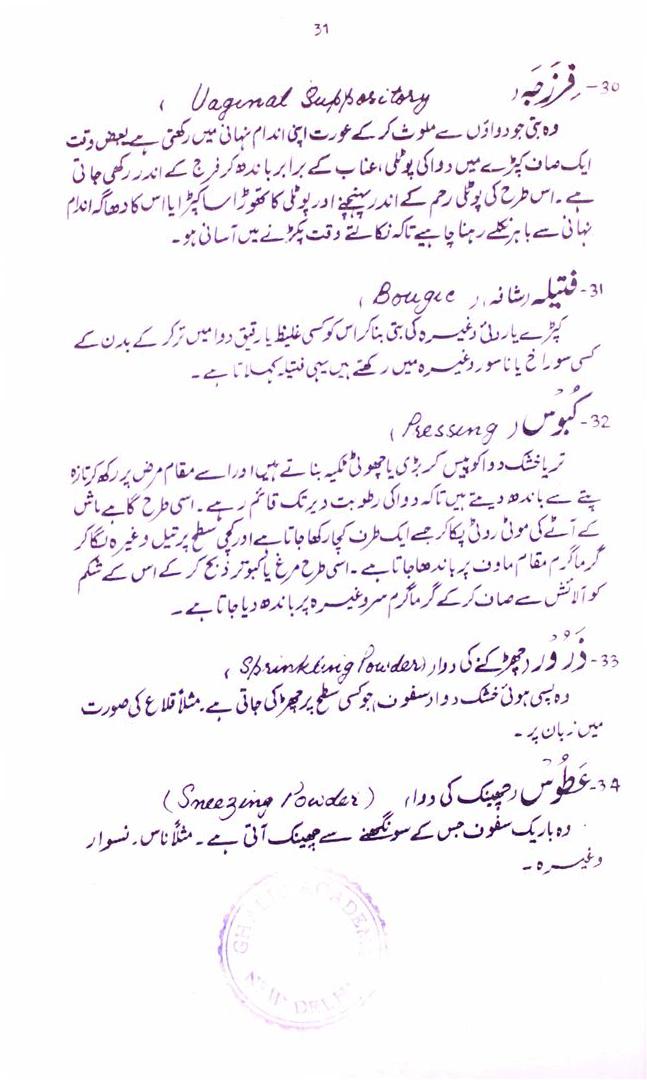 31
30- فِرزَجَہ ( Vaginal Suppository )
وہ بتی جو دواؤں سے ملوث کر کے عورت اپنی اندام نہانی میں رکھتی ہے۔ بعض وقت
ایک صاف کپڑے میں دوا کی پوٹلی، عناب کے برابر باندھ کر فرج کے اندر رکھی جاتی
ہے۔ اس طرح کی پوٹلی رحم کے اندر پہنچنے اور پوٹلی کا تھوڑا سا کپڑا یا اس کا دھاگہ اندام
نہانی سے باہر نکلے رہنا چاہیے تاکہ نکالتے وقت پکڑنے میں آسانی ہو۔
31- فتیلہ (شافہ) ( Bougie )
کپڑے یا روئی وغیرہ کی بتی بنا کر اس کو کسی غلیظ یا رقیق دوا میں تر کر کے بدن کے
کسی سوراخ یا ناسور وغیرہ میں رکھتے ہیں یہی فتیلہ کہلاتا ہے۔
32- کُبُوس ( Pressing )
تر یا خشک دوا کو پیس کر بڑی یا چھوٹی ٹکیہ بناتے ہیں اور اسے مقام مرض پر رکھ کر تازہ
پتے سے باندھ دیتے ہیں تاکہ دوا کی رطوبت دیر تک قائم رہے۔ اسی طرح گاہے ماش
کے آٹے کی موٹی روٹی پکا کر جسے ایک طرف کچا رکھا جاتا ہے اور کچی سطح پر تیل وغیرہ لگا کر
گرما گرم مقام ماوف پر باندھا جاتا ہے۔ اسی طرح مرغ یا کبوتر ذبح کر کے اس کے شکم
کو آلائش سے صاف کر کے گرما گرم سر وغیرہ پر باندھ دیا جاتا ہے۔
33- ذَرُوْر (چھڑکنے کی دوا) (Sprinkling Powder)
وہ پسی ہوئی خشک دوا (سفوف) جو کسی سطح پر چھڑکی جاتی ہے۔ مثلاً قلاع کی صورت
میں زبان پر۔
34- عَطُوْس (چھینک کی دوا) (Sneezing Powder)
وہ باریک سفوف جس کے سونگھنے سے چھینک آتی ہے۔ مثلاً ناس۔ نسوار
وغیرہ۔
GHALIB ACADEMY
NEW DELHI